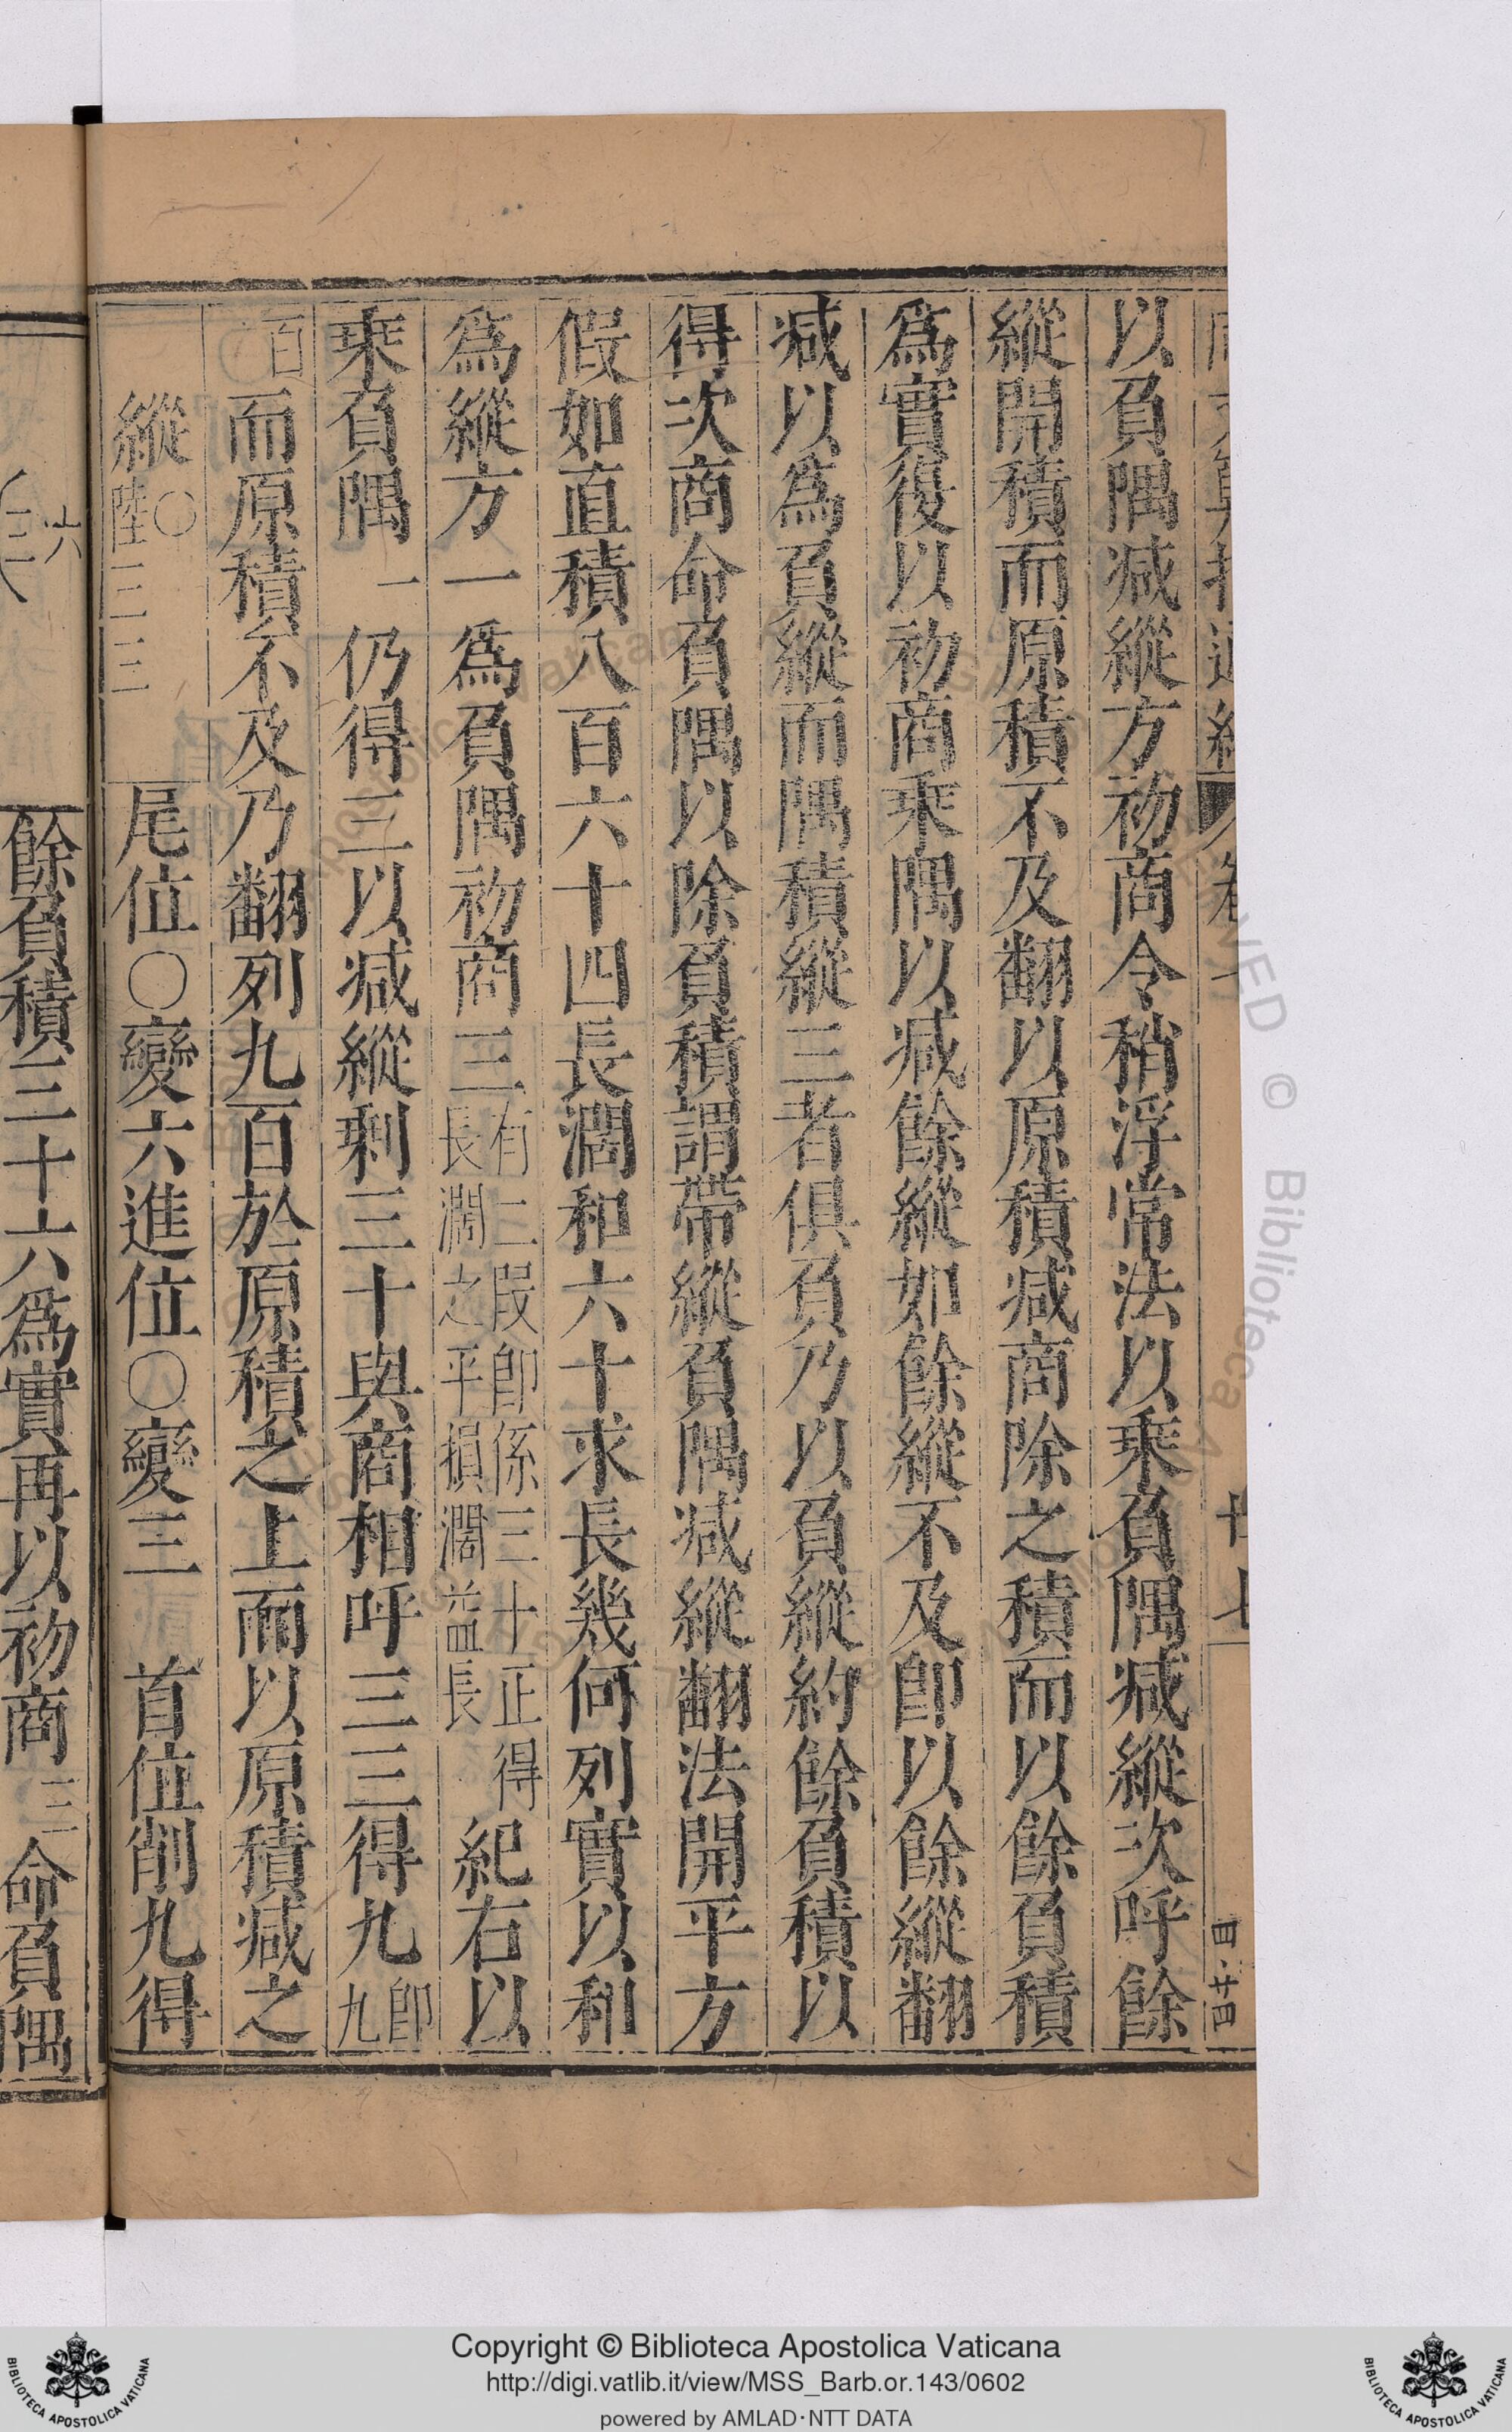 以負隅减縱方初商令稍浮常法以乘負隅减縱次呼餘
縱開積而原積不及翻以原積减商除之積而以餘負積
爲實復以初商乘隅以减餘縱如餘縱不及卽以餘縱翻
减以爲負縱而隅積縱三者俱負乃以負縱約餘負積以
得次商命負隅以除負積謂帶縱負隅减縱翻法開平方
假如直積八百六十四長濶和六十求長幾何列實以和
爲縱方一爲負隅初商三有二叚卽係三十正得長濶之平損濶益長紀右以
乘負隅一仍得三以减縱剩三十與商相呼三三得九卽九
百而原積不及乃翻列九百於原積之上而以原積减之
縱〇陸三三
尾位〇變六進位〇變三 首位削九得
六
餘負積三十六爲實再以初商三命負隅
卷
廿七
四·廿四
Copyright © Biblioteca Apostolica Vaticana
http://digi.vatlib.it/view/MSS_Barb.or.143/0602
powered by AMLAD·NTT DATA
BIBLIOTECA APOSTOLICA VATICANA
BIBLIOTECA APOSTOLICA VATICANA